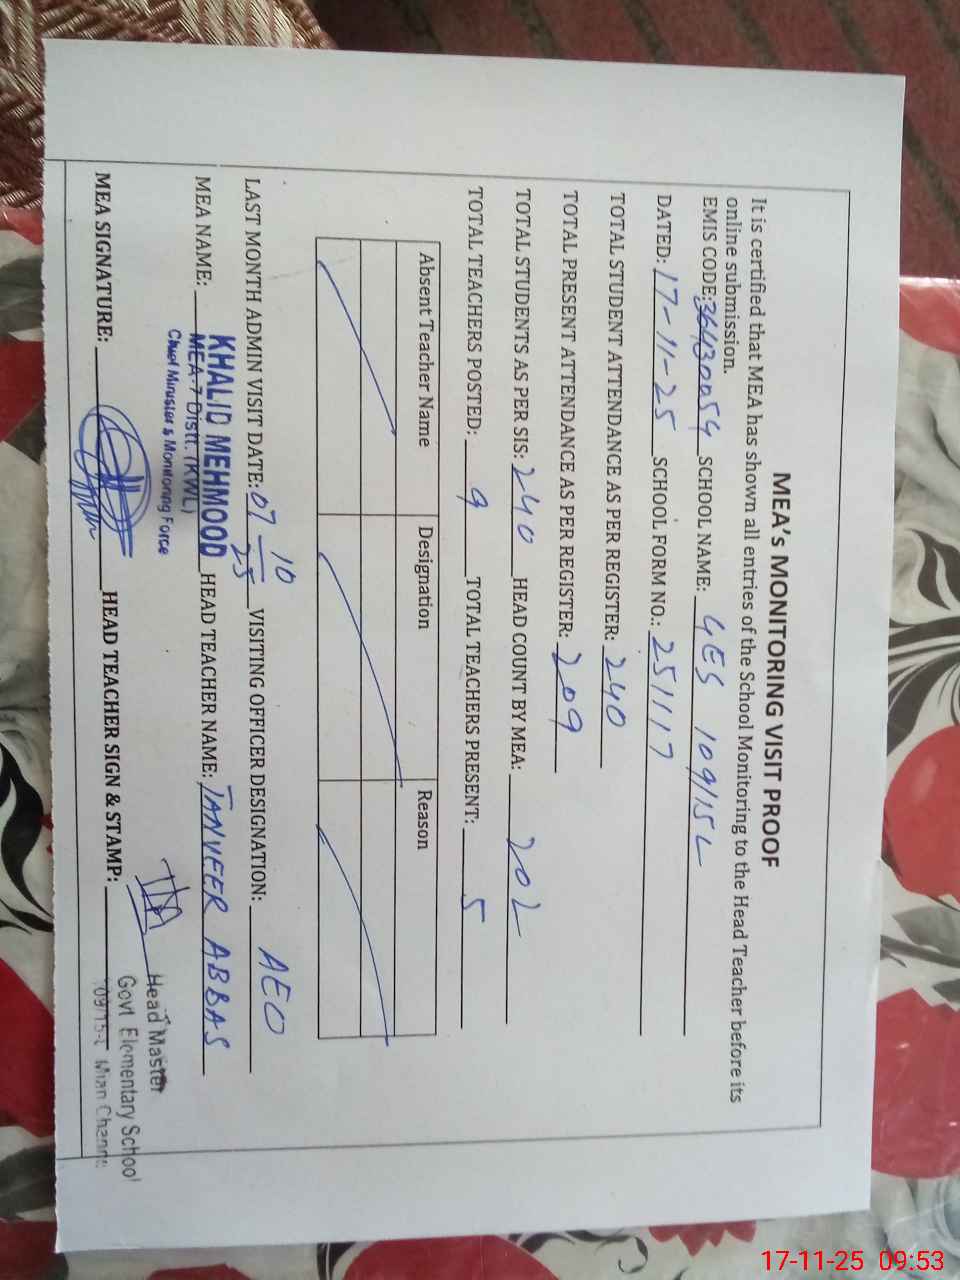 MEA's MONITORING VISIT PROOF
It is certified that MEA has shown all entries of the School Monitoring to the Head Teacher before its
online submission.
EMIS CODE: 36430054 SCHOOL NAME: GES 109/15L
DATED: 17-11-25 SCHOOL FORM NO.: 251117
TOTAL STUDENT ATTENDANCE AS PER REGISTER: 240
TOTAL PRESENT ATTENDANCE AS PER REGISTER: 209
TOTAL STUDENTS AS PER SIS: 240 HEAD COUNT BY MEA: 202
TOTAL TEACHERS POSTED: 9 TOTAL TEACHERS PRESENT: 5
Absent Teacher Name Designation Reason
LAST MONTH ADMIN VISIT DATE: 07 10 25 VISITING OFFICER DESIGNATION: AEO
MEA NAME: KHALID MEHMOOD HEAD TEACHER NAME: TANVEER ABBAS
MEA-7 Distt. (KWL)
Chief Minister's Monitoring Force
MEA SIGNATURE: HEAD TEACHER SIGN & STAMP:
Head Master
Govt Elementary School
109/15-L Mian Channu
17-11-25 09:53